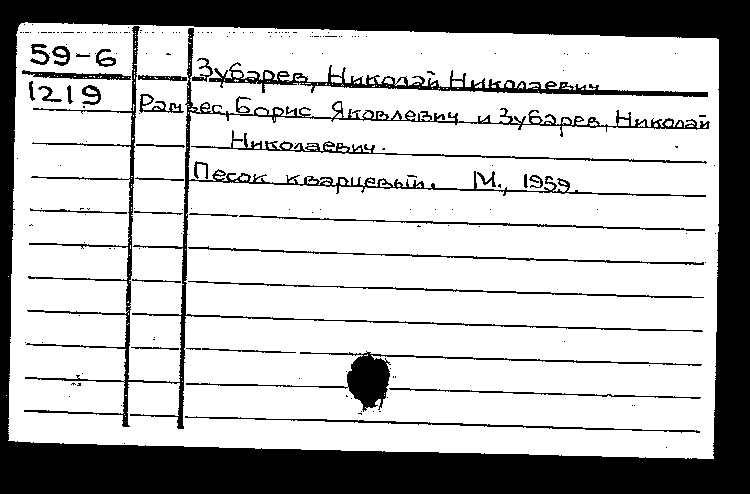 59-6 Зубарев, Николай Николаевич
1219 Рамзес, Борис Яковлевич и Зубарев, Николай
Николаевич.
Песок кварцевый. М., 1959.